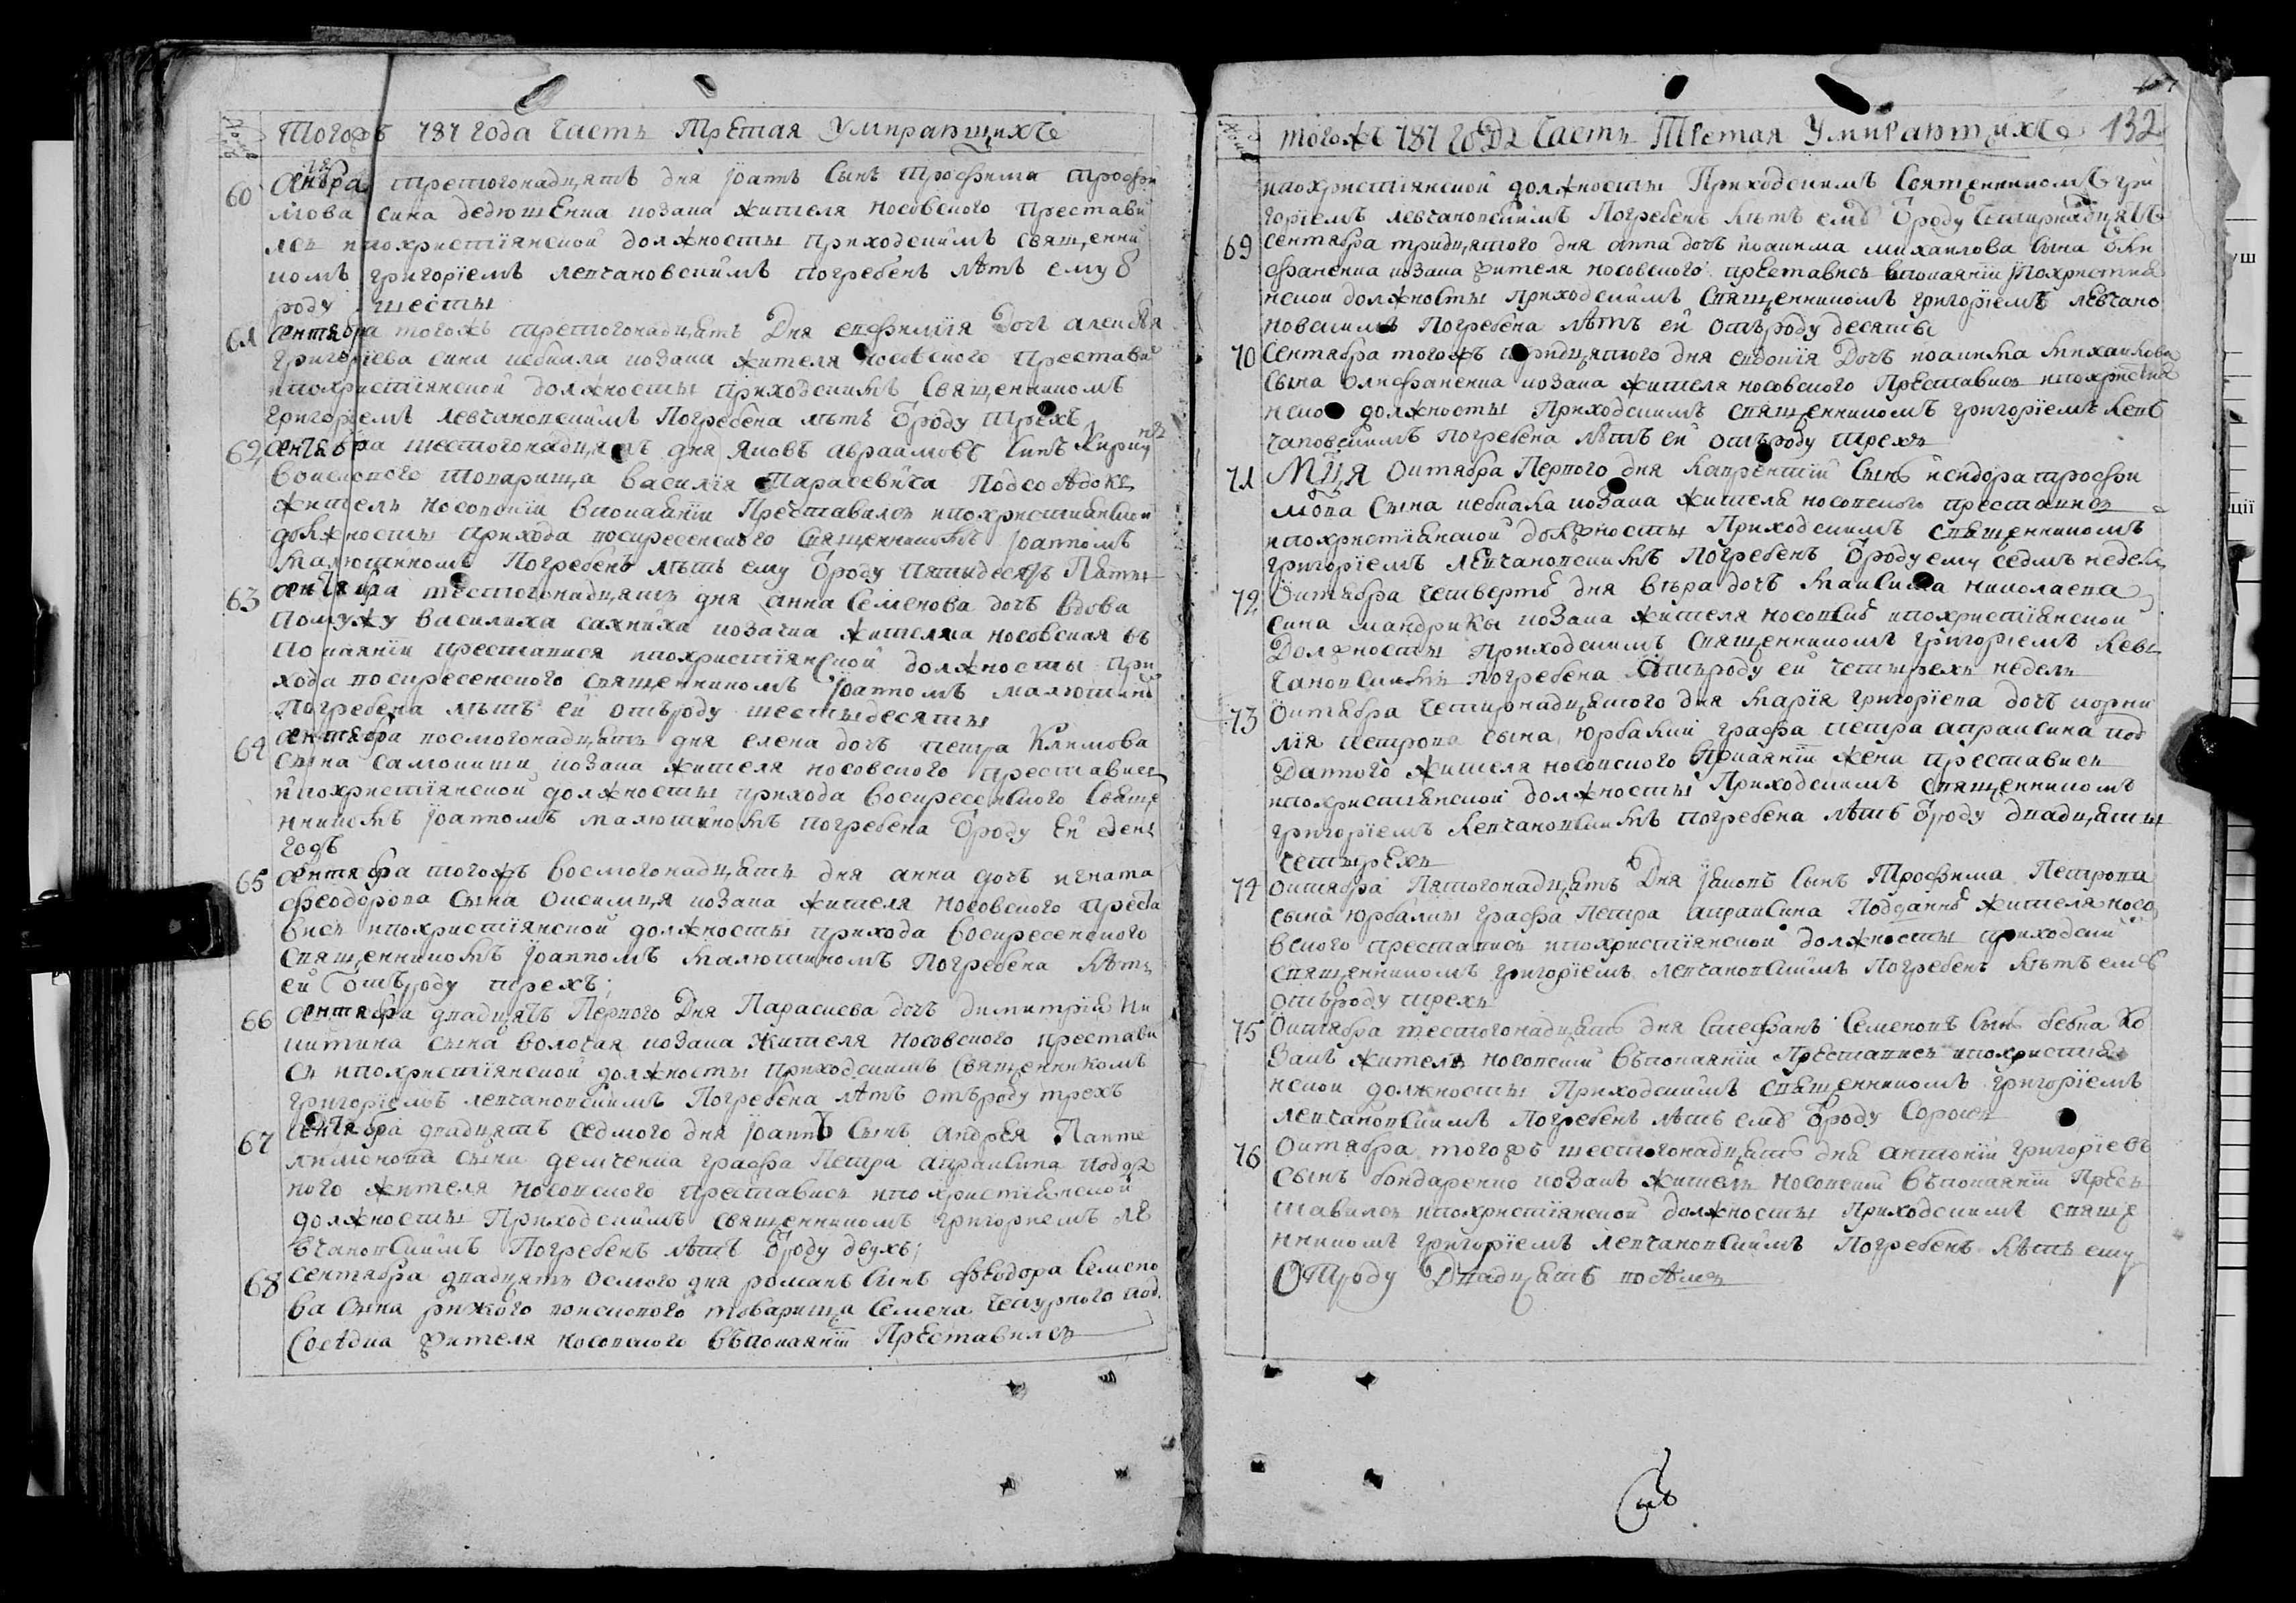 Тогожъ 787 года Часть Третая Умирающихъ
60 Сентября третогонадцять дня Іоаннъ Сынъ Трофима Трофи
мова сина дедюшенка козака жителя носовского Престави
лся похристіянской должности приходскимъ священни
комъ григоріемъ левчановскимъ погребенъ лѣтъ ему ѿ
роду шесты
61 Сентября тогожъ третогонадцять Дня евфимія Дочь алексѣя
григоріева сина цебкала козака жителя носовского Престави
похристіянской должности приходскимъ Священникомъ
григоріемъ левчановскимъ Погребена лѣтъ ѿроду трехъ
62 Сентября шестогонадцять дня Яковъ авраамовъ Синъ
войскового товарища василія Тарасевича Подсосѣдокъ
житель носовскій впокаяніи Преставился похристиянской
должности прихода воскресенского Священникомъ Іоанномъ
малюшиномъ Погребенъ лѣтъ ему ѿроду пятидесятъ Пяты
63 Сентября шестогонадцять дня анна Семенова дочь вдова
Помужу василиха сахниха козачка жителка носовская въ
покаяніи преставися похристіянской должности при
хода воскресенского священникомъ Іоанномъ малюшино
Погребена лѣтъ ей отъроду шестьдесяты
64 Сентября восмогонадцять дня елена дочь петра Климова
сына самокиши козака жителя носовского преставись
похристіянской должности прихода воскресенского Свяще
нникомъ Іоанномъ малюшиномъ погребена ѿроду ей еденъ
годъ
65 Сентября тогожъ восмогонадцять дня анна дочь игната
феодорова сына онсимця козака жителя носовского преста
вись похристіянской должности прихода воскресенского
Священникомъ Іоанномъ малюшиномъ Погребена лѣтъ
ей ѿтъроду трехъ
66 Сентября двадцять Первого Дня Парасиева дочь димитрія ни
китина сына волотая козака жителя носовского престави
сь похристіянской должности приходскимъ Священникомъ
григоріемъ левчановскимъ Погребена лѣтъ отъроду трехъ
67 Сентября двадцять Седмого дня Іоаннъ Сынъ андрея Панте
лимонова сына демченка графа Петра апраксина подда
ного жителя носовского преставись похристіянской
должности Приходскимъ священникомъ григориемъ ле
вчановскимъ Погребенъ лѣтъ ѿроду двухъ
68 Сентября двадцять осмого дня романъ Синъ феодора Семено
ва сына рижого войскового товарища Семена чепурного под
сосѣдка жителя носовского въпокаяніи Преставился
тогоже 787 года Часть Третая Умирающихъ 132
похристіянской должности Приходскимъ Священникомъ гри
горіемъ левчановскимъ Погребенъ лѣтъ ему ѿроду Четирнадцять
69 Сентября тридцятого дня анна дочь иоакима михаилова сына оли
фаненка козака жителя носовского преставись впокаяніи похристия
нской должности приходскимъ Священникомъ григоріемъ левчано
новскимъ Погребена лѣтъ ей отъроду десяты
70 Сентября тогожъ тридцятого дня евдокія Дочь иоакима михаилова
Сына олифаненка козака жителя носовского Преставись похристия
нской должности Приходскимъ священникомъ григоріемъ лев
чановскимъ погребена лѣтъ ей отъроду трехъ
71 Мця Октября Первого дня лаврентій Сынъ исидора трофи
мова Сына цебкала козака жителя носовского преставись
похристіянской должности Приходскимъ Священникомъ
григоріемъ левчановскимъ Погребенъ ѿроду ему седмъ недель
72 Октября четвертого дня вѣра дочь максима николаева
сина мандрики козака жителя носовского похристіянской
Должности Приходскимъ Священникомъ григоріемъ лев
чановскимъ погребена ѿтъроду ей четырехъ недель
73 Октября четирнадцятого дня марія григоріева дочь корни
лія петрова сына юрбалки графа петра апраксина под
данного жителя носовского впокаяніи жена преставись
похристіянской должности Приходскимъ священникомъ
григоріемъ левчановскимъ погребена лѣтъ ѿроду двадцяти
четырехъ
74 Октября Пятогонадцять Дня Іаковъ Сынъ Трофима Петрова
сына юрбалки графа Петра апраксина Подданного жителя носо
вского преставись похристіянской должности приходски
священникомъ григоріемъ левчановскимъ Погребенъ лѣтъ ему
отъроду трехъ
75 Октября шестогонадцять дня Стефанъ Семеновъ Сынъ бебка ко
закъ житель носовскій въпокаяніи Преставись похристия
нской должности Приходскимъ Священникомъ григоріемъ
левчановскимъ Погребенъ лѣтъ ему ѿроду Сорокъ
76 Октября тогожъ шестогонадцять дня антоній григоріевъ
Сынъ бондаренко козакъ житель носовскій въпокаяніи Прес
тавился похристіянской должности Приходскимъ свяще
нникомъ григоріемъ левчановскимъ Погребенъ лѣтъ ему
Отроду Двадцять восѣмъ